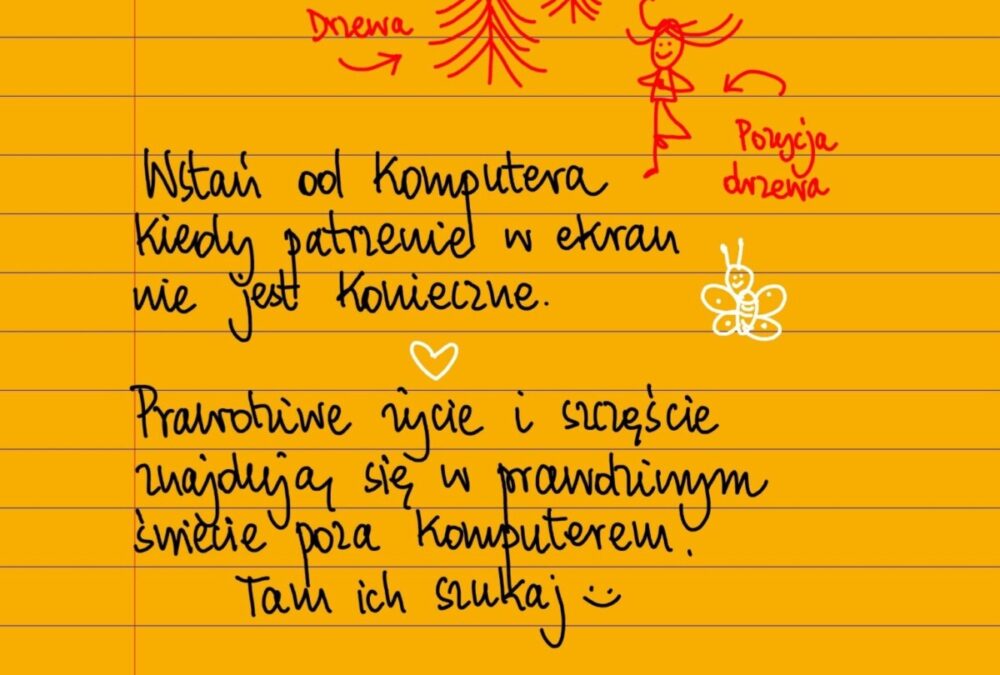 Drzewa
Pozycja
drzewa
Wstań od komputera
kiedy patrzenie w ekran
nie jest konieczne.
Prawdziwe życie i szczęście
znajdują się w prawdziwym
świecie poza komputerem.
Tam ich szukaj :)